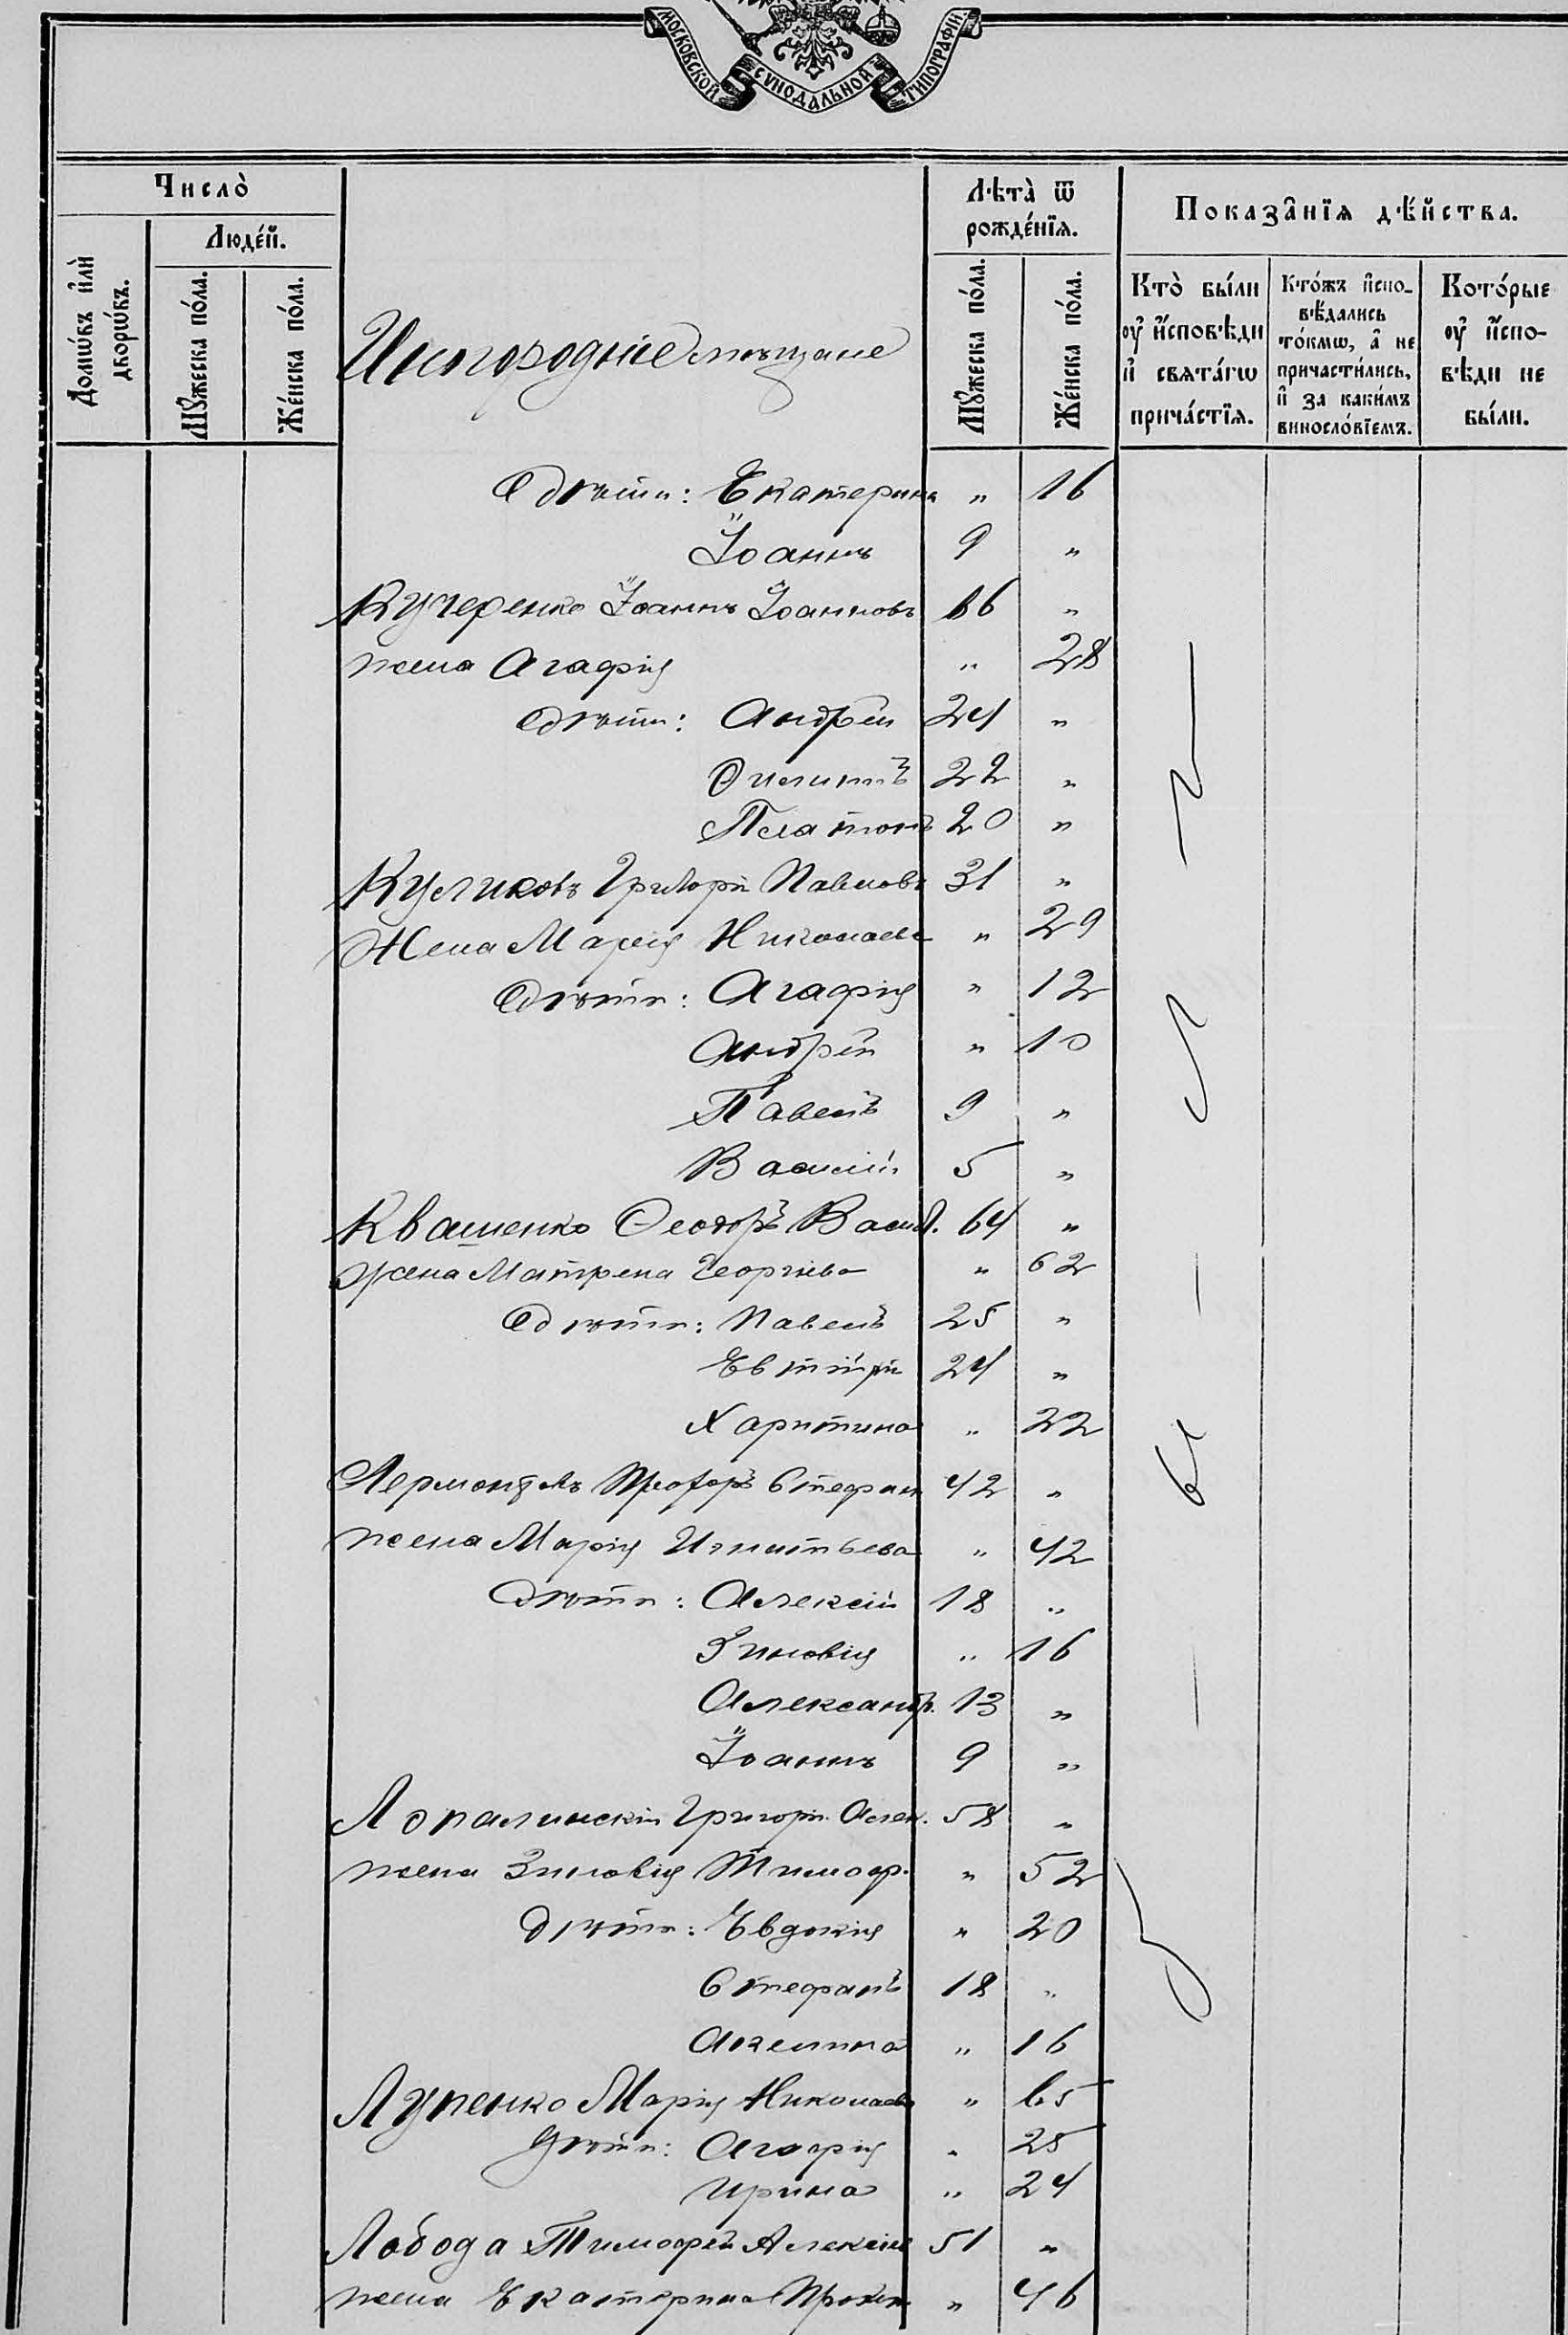 МОСКОВСКОЙ СѴНОДАЛЬНОЙ ТИПОГРАФІИ
Число̀
Люде́й.
Домѡ́въ и҆лѝ дворѡ́въ.
Мꙋ́жеска по́ла.
Же́нска по́ла.
Иногородніе мѣщане
Лѣта̀ ѿ рожде́нїѧ.
Мꙋ́жеска по́ла.
Же́нска по́ла.
Показа̑нїѧ дѣ́йства.
Кто̀ бы́ли ᲂу҆ и҆́сповѣди и҆ свѧта́гѡ прича́стїѧ.
Кто́жъ и҆спо-вѣ́дались то́кмѡ, а҆ не причасти́лись, и҆ за каки́мъ виносло́вїемъ.
Кото́рые ᲂу҆ и҆́спо-вѣди не бы́ли.
дѣти: Екатерина " 16
Іоаннъ 9 "
Кучеренко Іоаннъ Іоанновъ 66 "
жена Агафія " 28
дѣти: Андрей 24 "
Филиппъ 22 "
Платонъ 20 "
Куликовъ Григорій Павловъ 31 "
Жена Марія Николаева " 29
дѣти: Агафія " 12
Андрей " 10
Павелъ 9 "
Василій 5 "
Квашенко Ѳеодоръ Васил. 64 "
жена Матрена Георгіева " 62
дѣти: Павелъ 25 "
24 "
Харитина " 22
Лермонтовъ Стефан 42 "
жена Марія Игнатьева " 42
дѣти: Алексій 18 "
Зиновія " 16
Александр. 13 "
Іоаннъ 9 "
Григорій Алек. 58 "
жена Зиновія Тимоф. " 52
дѣти: Евдокія " 20
Стефанъ 18 "
Акелина " 16
Лупенко Марія Николаева " 65
дѣти: Агафія " 25
Ирина " 24
Лобода Тимофей Алексіев 51 "
жена Екатерина Прокоп " 46